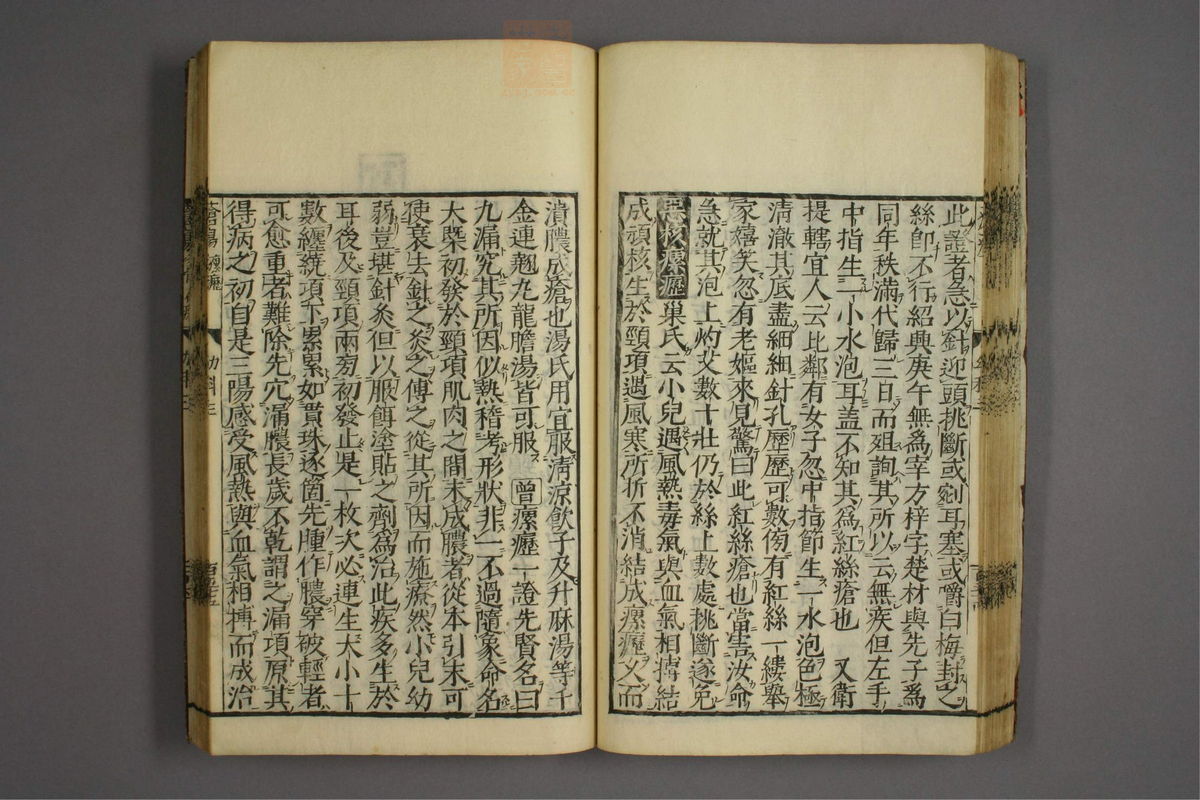 此證者急以針迎頭挑斷或刳耳塞或嚼白梅封之
絲卽不行紹興庚午無爲宰方梓字楚材與先子爲
同年秩滿代歸三日而殂詢其所以云無疾但左手
中指生一小水泡耳盖不知其爲紅絲瘡也 又衛
提轄宜人云比鄰有女子忽中指節生一水泡色極
清澈其底盡細細針孔歷歷可數傍有紅絲一縷舉
家嬉笑忽有老嫗來見驚曰此紅絲瘡也當害汝命
急就其泡上灼艾數十壯仍於絲上數處挑斷遂免
惡核瘰癧巢氏云小兒遇風熱毒氣與血氣相搏結
成頑核生於頸項遇風寒所折不消結成瘰癧久而
潰膿成瘡也湯氏用宜服清涼飮子及升麻湯等千
金連翹九龍膽湯皆可服 曾瘰癧一證先賢名曰
九漏究其所因似熱稽考形狀非一不過隨象命名
大槩初發於頸項肌肉之間未成膿者從本引末可
使衰去針之灸之傅之從其所因而施療然小兒幼
弱豈堪針灸但以服餌塗貼之劑爲治此疾多生於
耳後及頸項兩旁初發止是一枚次必連生大小十
數纏繞項下累累如貫珠逐箇先腫作膿穿破輕者
可愈重者難除先穴漏膿長歲不乾謂之漏項原其
得病之初自是三陽感受風熱與血氣相搏而成治